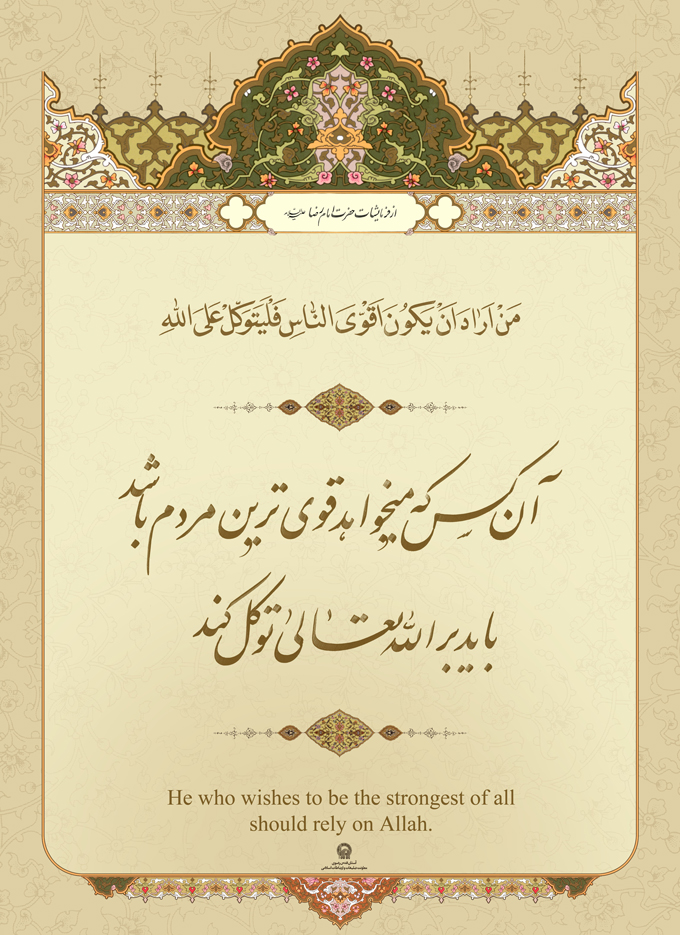 از فرمایشات حضرت امام رضا علیه‌السلام
مَنْ اَرٰادَ اَنْ یَکُونَ اَقْوَی النّاسِ فَلْیَتَوَکَّلْ عَلَی اللّٰهِ
آن کس که میخواهد قوی ترین مردم باشد
باید بر الله تعالیٰ توکل کند
He who wishes to be the strongest of all
should rely on Allah.
آستان قدس رضوی
معاونت تبلیغات و ارتباطات اسلامی